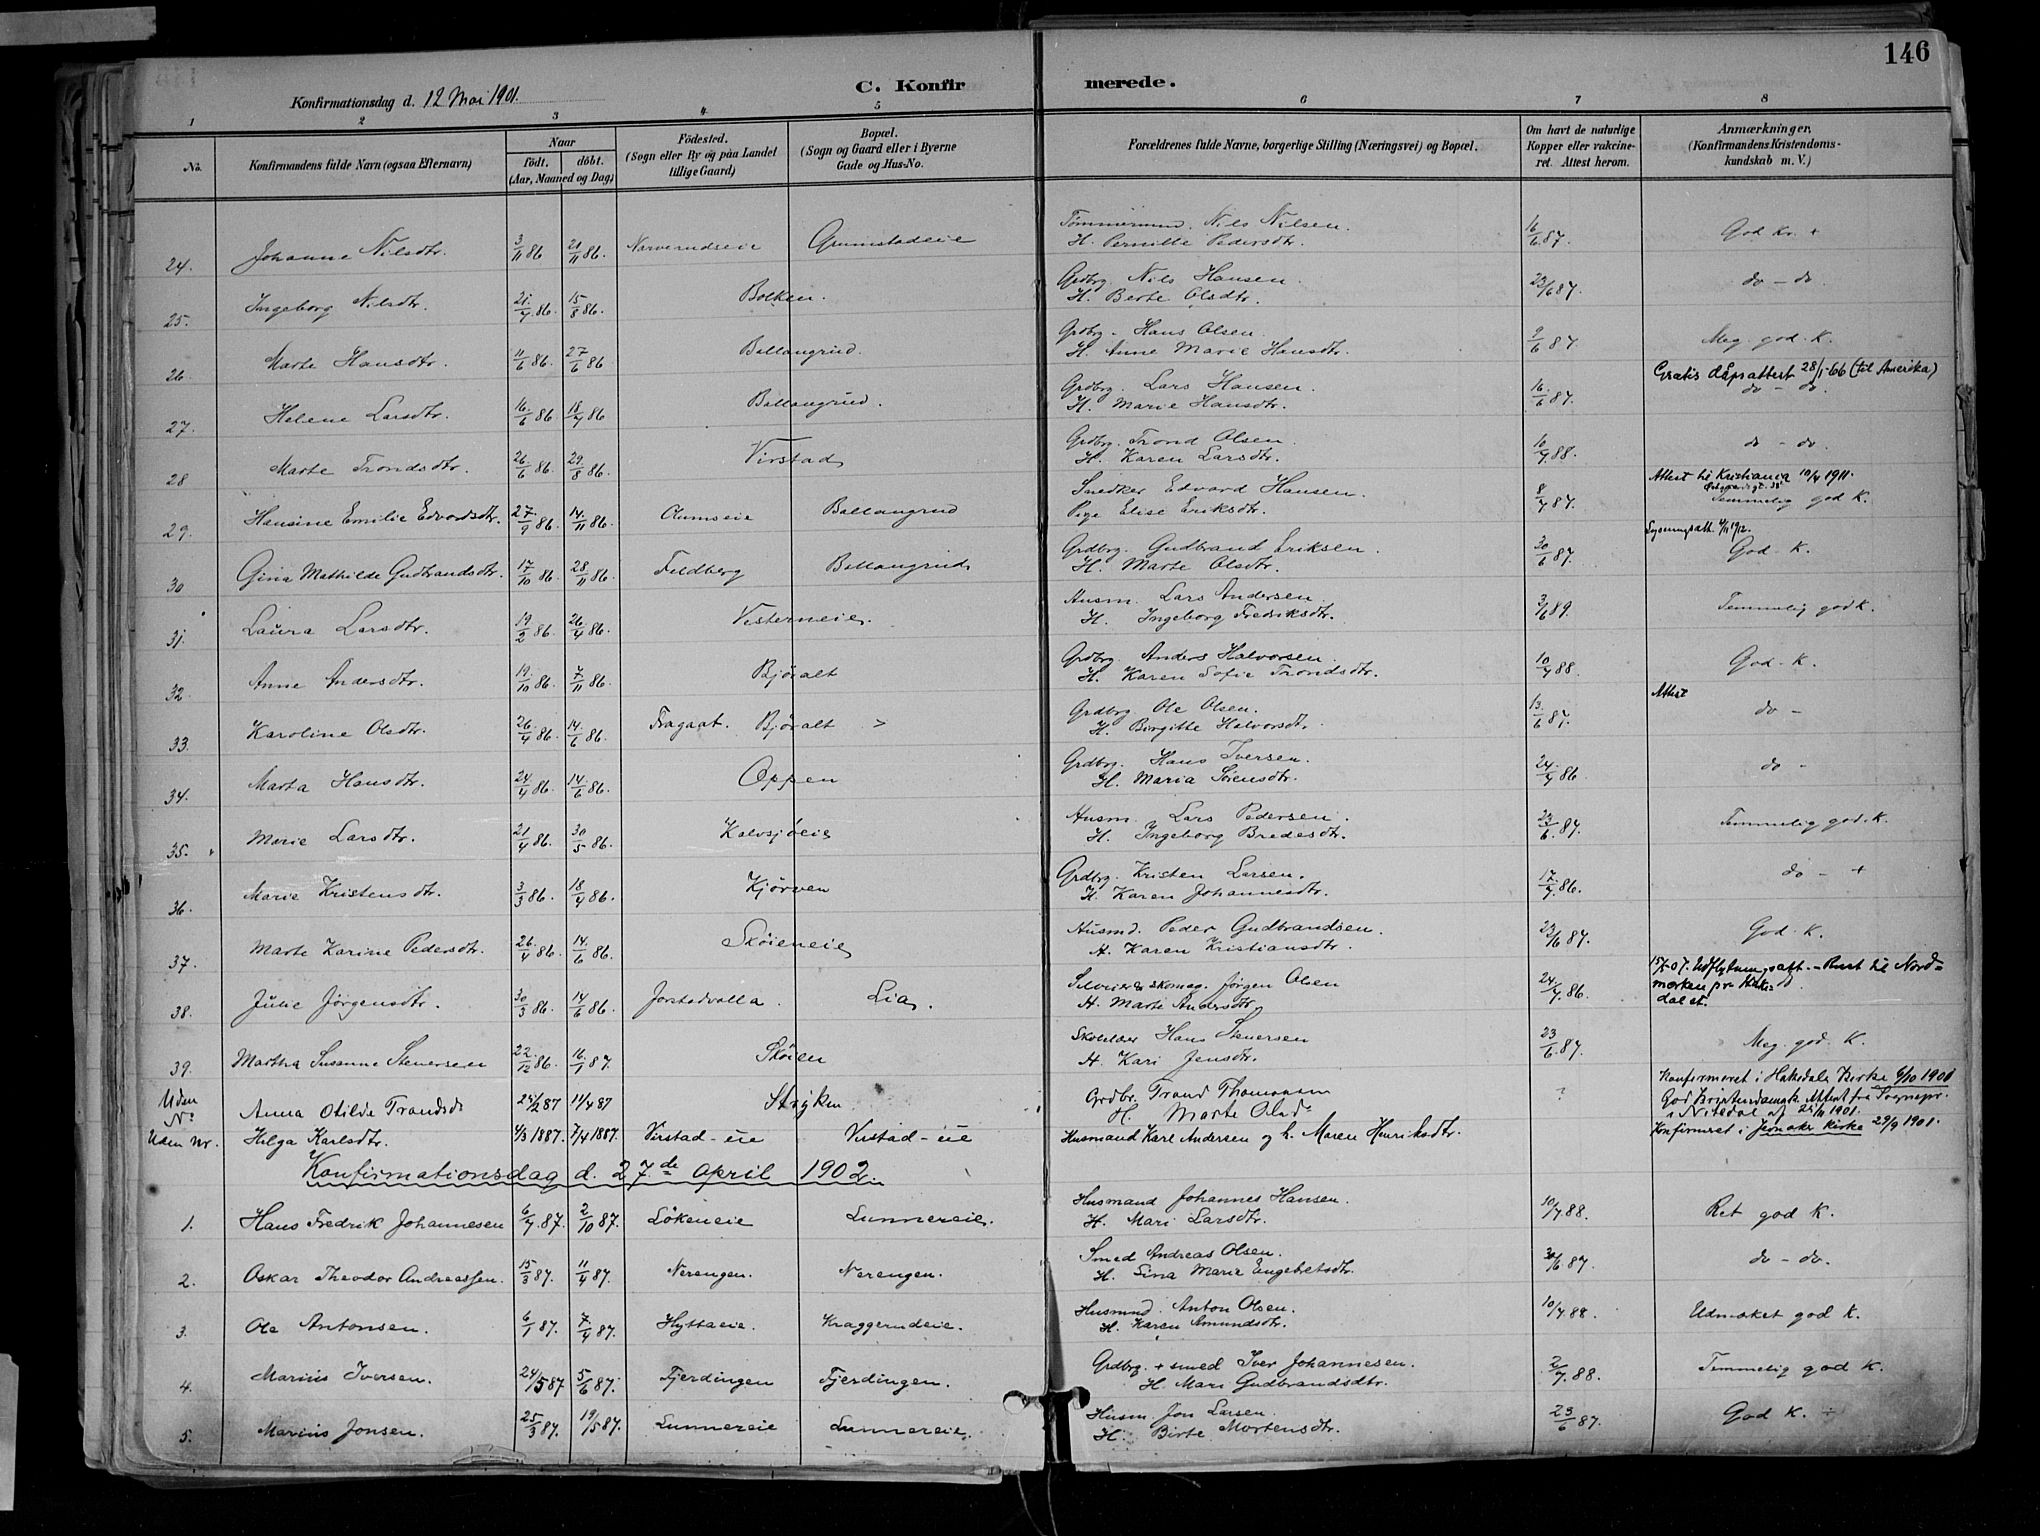 146
C. Konfirmerede.
Konfirmationsdag d. 12 Mai 1901.
1 2 3 4 5 6 7 8
No.
Konfirmandens fulde Navn (ogsaa Efternavn)
Naar
födt. döbt.
(Aar, Maaned og Dag)
Födested.
(Sogn eller By og paa Landet
tillige Gaard)
Bopæl.
(Sogn og Gaard eller i Byerne
Gade og Hus-No.
Forældrenes fulde Navne, borgerlige Stilling (Næringsvei) og Bopæl.
Om havt de naturlige
Kopper eller vakcine-
ret. Attest herom.
Anmærkninger.
(Konfirmandens Kristendoms-
kundskab m. V.)
24. Johanne Nilsdtr. 3/11 86 21/11 86. Narverudseie Grumstadeie Tømmermnd. Nils Nilsen. 16/6 87. God Kr. +
H. Pernille Pedersdtr.
25. Ingeborg Nilsdtr. 21/7 86. 15/8 86. Bolken. Grdbrg Nils Hansen 23/6 87. do - do.
H. Berte Olsdtr.
26. Marte Hansdtr. 11/6 86. 27/6 86 Ballangrud. Grdbrg. Hans Olsen. 9/6 87. Meg. god. K.
H. Anne Marie Hansdtr.
Gratis dåpsattest 28/1-66 (til Amerika)
27. Helene Larsdtr. 16/6 86 18/7 86 Ballangrud. Grdbrg. Lars Hansen. 16/6 87. do - do.
H. Marie Hansdtr.
28 Marte Trondsdtr. 26/6 86. 29/8 86. Virstad Grdbrg. Trond Olsen. 10/7 88. do - do.
H. Karen Larsdtr.
Attest til Kristiania 10/4 1911.
29. Hansine Emilie Edvardsdtr. 27/9 86. 14/11 86. Olumseie Ballangrud Snedker Edvard Hansen. 8/7 87. Temmelig god K.
Pige Elise Eriksdtr.
Lysningsatt. 4/11 1912.
30 Gina Mathilde Gudbrandsdtr. 17/10 86. 28/11 86. Feldberg Ballangrud Grdbrg. Gudbrand Eriksen. 30/6 87. God. K.
H. Marte Olsdtr.
31. Laura Larsdtr. 19/2 86. 26/4 86. Vesterneie. Husm. Lars Andersen. 3/6 89. Temmelig god K.
H. Ingeborg Fredriksdtr.
32. Anne Andersdtr. 19/10 86. 7/11 86. Bjøralt Grdbrg Anders Halvorsen. 10/7 88. God. K.
H. Karen Sofie Trondsdtr.
Attest
33. Karoline Olsdtr. 26/4 86. 14/6 86. Fragaat. Bjøralt > Grdbrg. Ole Olsen. 13/6 87. do -
H. Birgitte Halvorsdtr.
34. Marta Hansdtr. 24/4 86. 14/6 86. Oppen Grdbrg. Hans Iversen. 24/7 86 do -
H. Maria Sørensdtr.
35. Marie Larsdtr. 21/4 86. 30/5 86. Kalvsjøeie Husm. Lars Pedersen. 23/6. 87. Temmelig god. K.
H. Ingeborg Bredesdtr.
36. Marie Kristensdtr. 3/3 86. 18/4 86. Kjørven Grdbrg. Kristen Larsen. 17/7. 86. do - +
H. Karen Johannesdtr.
37. Marte Karine Pedersdtr. 26/4 86. 14/6 86. Skøieneie Husmd. Peder Gudbrandsen. 23/6 87. God. K.
H. Karen Kristiansdtr.
38. Julie Jørgensdtr. 30/3 86. 14/6 86. Jorstadvolla. Lia. Selveier & skomag. Jørgen Olsen 24/7. 86.
H. Marte Andersdtr
15/5 07. Udflytningsatt. - Rust til Nord=
marken pr Hake=
dal st.
39. Martha Susanne Stenersen 22/12 86. 16/1 87. Skøien Skolelær Hans Stenersen 23/6. 87. Meg. god. K.
H. Kari Jensdtr.
Uden No Anna Otilde Trondsd 24/2 87 11/4 87 Stryken Grdbr. Trond Thomassen ?
H. Marte Olsd
Konfirmeret i Hakedals Kirke 6/10 1901
God Kristendomsk. Attest fra Sognepr.
i Nitedal af 25/11 1901.
Uden Nr. Helga Karlsdtr. 4/3 1887. 7/4 1887. Virstad-eie Virstad-eie Husmand Karl Andersen og h. Maren Henriksdtr. Konfirmeret i Jevnaker Kirke 29/9 1901.
Konfirmationsdag d. 27.de april 1902.
1. Hans Fredrik Johannesen 6/7 87. 2/10 87. Løkeneie Lunnereie. Husmand Johannes Hansen. 10/7 88. Ret god K.
H. Mari Larsdtr.
2. Oskar Theodor Andreassen. 15/3 87. 11/4 87. Nerengen. Nerengen. Smed Andreas Olsen. 30/6 87. do - do.
H. Sina Marie Engebretsdtr.
3. Ole Antonsen. 6/1 87. 7/4 87. Hyttaeie. Kraggerudeie. Husmnd. Anton Olsen. 10/7 88. Udmærket god K.
H. Karen Amundsdtr.
4. Marius Iversen. 24/5 87 5/6 87. Fjerdingen Fjerdingen. Grdbrg. + smed Iver Johannesen. 2/7. 88. Temmelig god K.
H. Mari Gudbrandsdtr.
5. Marius Jonsen. 25/3 87. 19/5 87. Lunnereie Lunnereie. Husm Jon Larsen. 23/6 87. God K. +
H. Birte Mortensdtr.